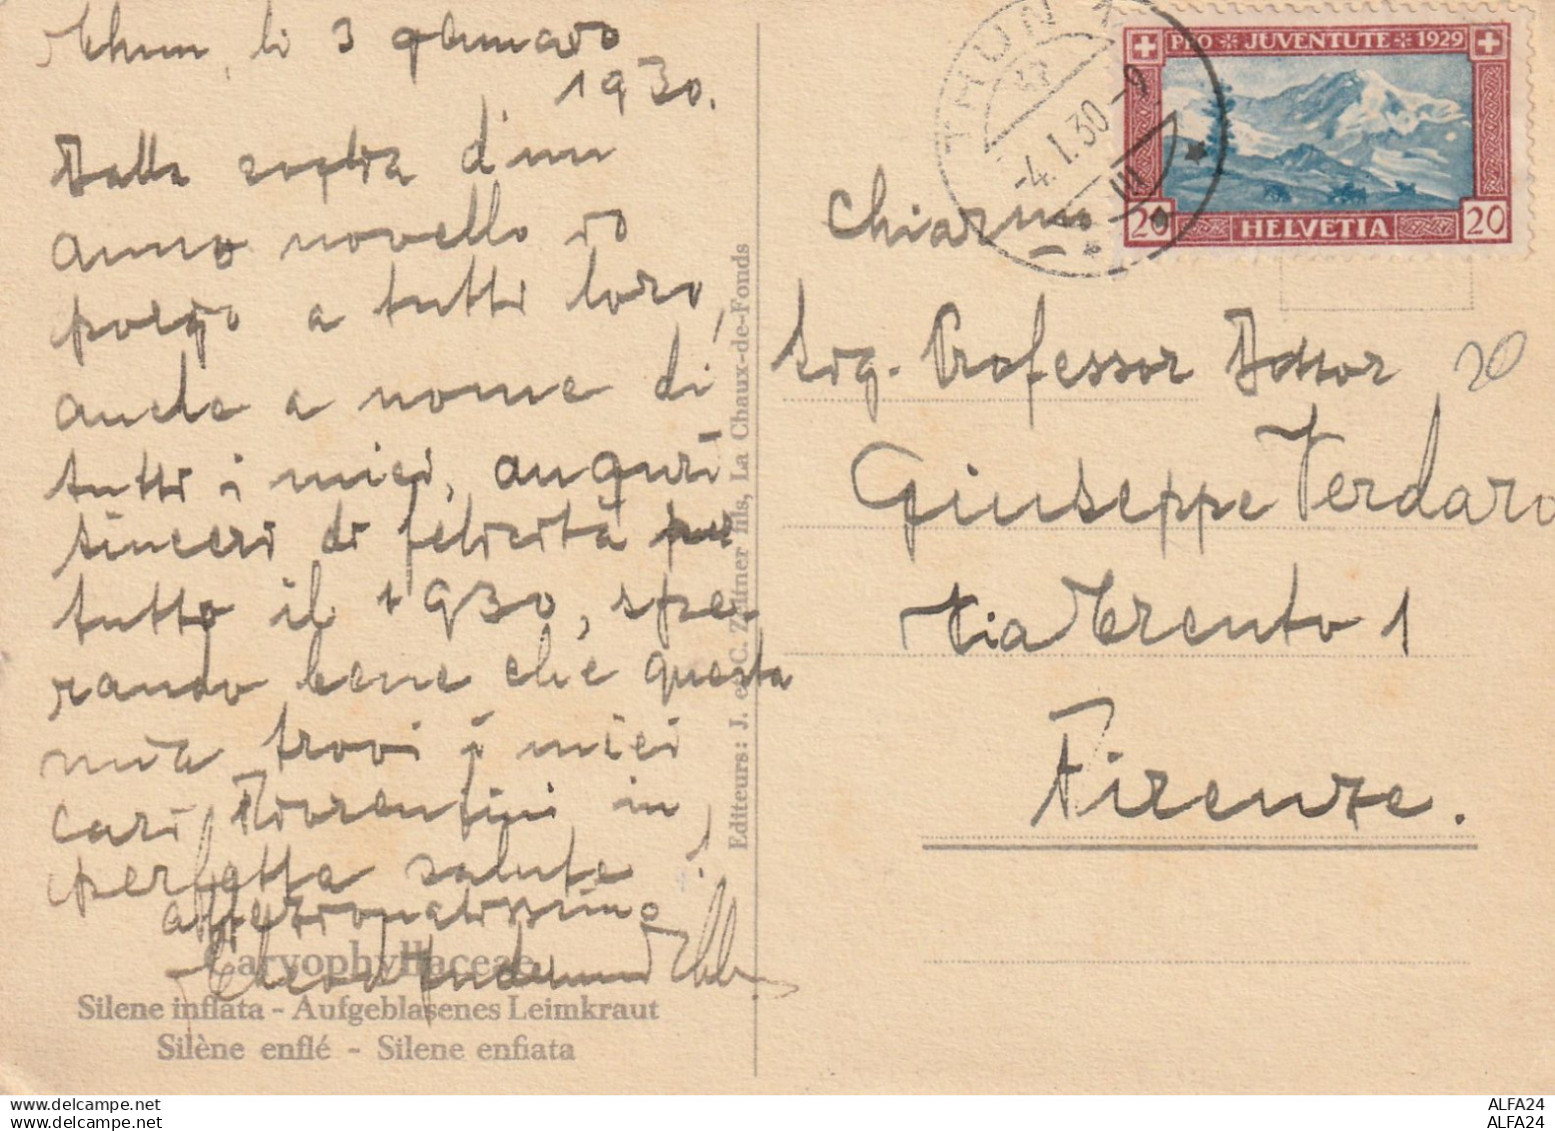 Thun, li 3 gennaro
1930.
Dalla soglia d'un
anno novello io
porgo a tutti loro,
anche a nome di
tutti i miei, auguri
sinceri di felicità per
tutto il 1930, spe-
rando bene che questa
mia trovi i miei
cari Fiorentini in
perfetta salute!
affezionatissimo
Caryophyllaceae
Silene inflata - Aufgeblasenes Leimkraut
Silène enflé - Silene enfiata
Editeurs: J. et C. Zeltner fils, La Chaux-de-Fonds
THUN
-4.I.30-9
III
PRO JUVENTUTE 1929
20 HELVETIA 20
Chiarmo
Sig. Professor Dottor
20
Giuseppe Verdaro
Via Trento 1
Firenze.
www.delcampe.net
www.delcampe.net
ALFA24
ALFA24